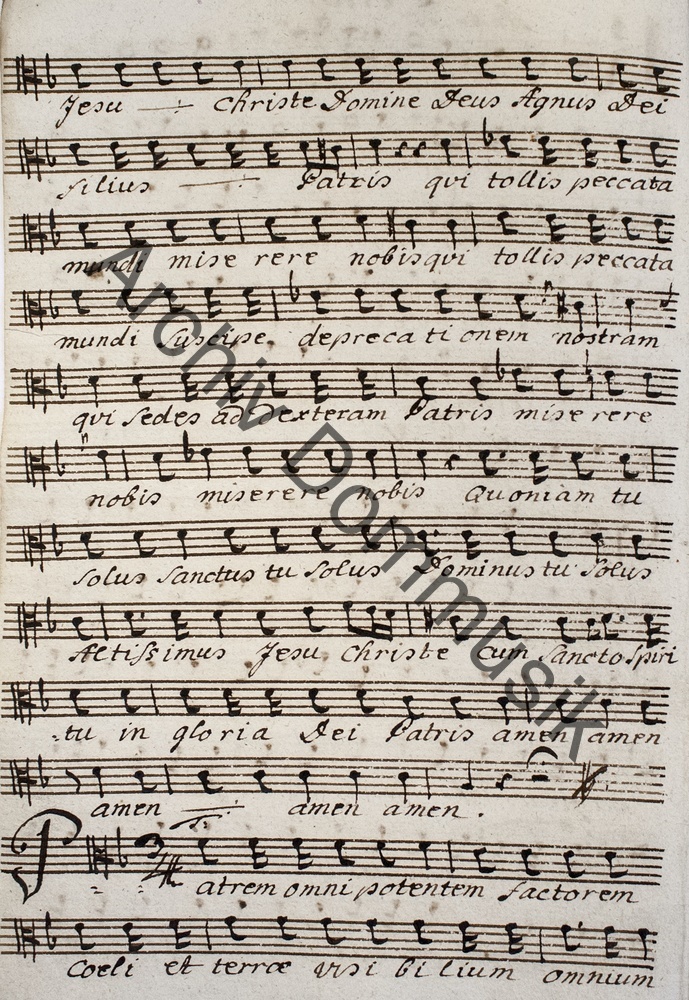 Jesu -÷- Christe Domine Deus Agnus Dei
filius -÷- Patris qui tollis peccata
mundi mise rere nobis qui tollis peccata
mundi Suscipe depreca ti onem nostram
qui Sedes ad dexteram Patris mise rere
nobis miserere nobis Quoniam tu
Solus Sanctus tu Solus Dominus tu Solus
Altissimus Jesu Christe Cum Sancto Spiri
tu in gloria Dei Patris amen amen
amen -÷- amen amen.
T.
3/4
Patrem omni potentem factorem
Coeli et terræ visi bi lium omnium
Archiv Dommusik